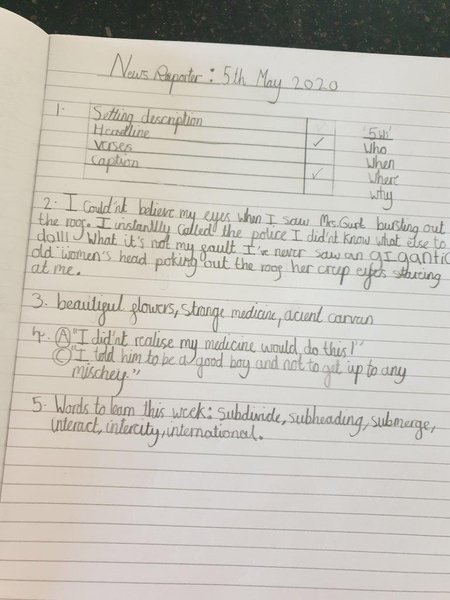 News Reporter: 5th May 2020
1. Setting description '5W'
Headline ✓ Who
Verses When
Caption ✓ Where
Why
2. I Could'nt believe my eyes when I saw Mrs. bursting out
the roof. I instantlly called the police I did'nt know what else to
do!!! What it's not my fault I've never saw an gigantic
old women's head poking out the roof her creep eyes staring
at me.
3. beautiful flowers, strange medicine, acient carvan
4. A "I did'nt realise my medicine would do this!"
C "I told him to be a good boy and not to get up to any
mischey."
5. Words to learn this week: Subdivide, subheading, submerge,
interact, intercity, international.